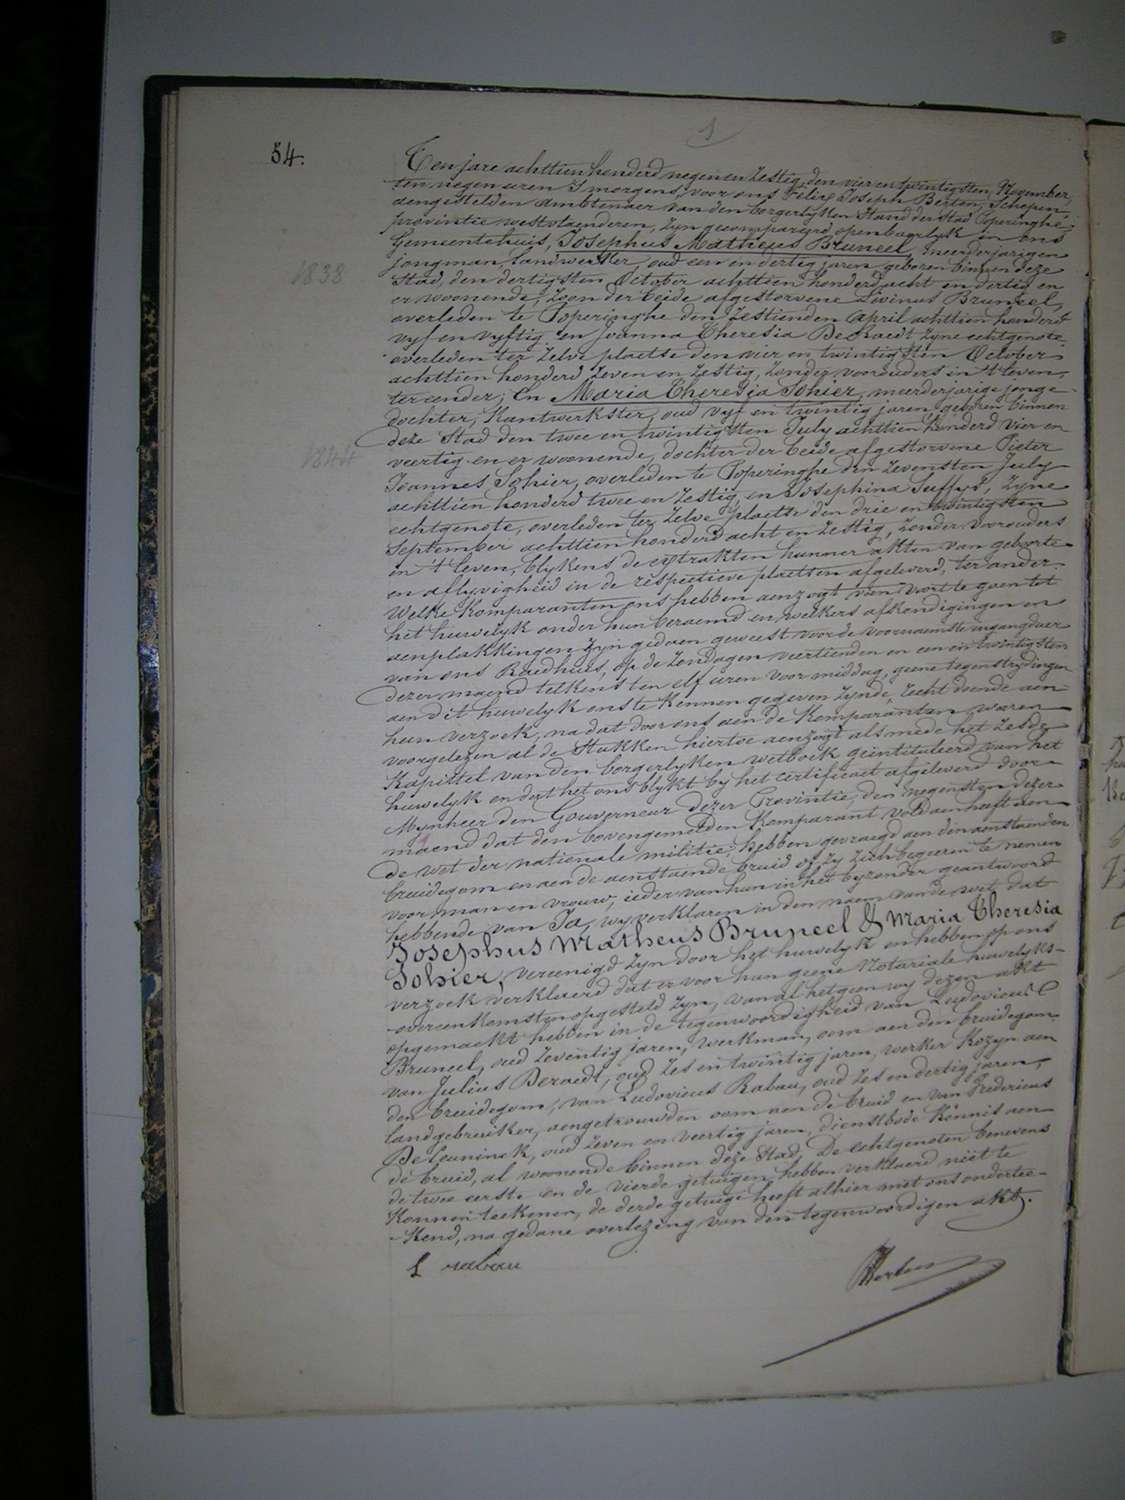 1
54.
Ten jare achttien honderd negen en zestig, den vier en twintigsten November,
ten negen uren 's morgens, voor ons Felix Joseph Berten, Schepen-
aengestelden Ambtenaer van den borgerlyken Stand der Stad Poperinghe,
provintie westvlaenderen, zyn gecompareerd openbaerlyk in ons
Gemeentehuis, Josephus Matheus Bruneel, meerderjarigen
jongman, landwerker, oud een en dertig jaren, geboren binnen deze
1838
Stad, den dertigsten October achttien honderd acht en dertig en
er woonende, zoon der beide afgestorvene Livinus Bruneel,
overleden te Poperinghe den zestienden April achttien honderd
vyf en vyftig en Joanna Theresia De Raedt zyne echtgenote
overleden ter zelve plaetse den vier en twintigsten October
achttien honderd zeven en zestig, zonder voorouders in 't leven,
ter eender; En Maria Theresia Sohier, meerderjarige jonge-
dochter, Kantwerkster, oud vyf en twintig jaren, geboren binnen
deze Stad den twee en twintigsten July achttien honderd vier en
1844
veertig en er woonende, dochter der beide afgestorvene Pieter
Joannes Sohier, overleden te Poperinghe den zevensten July
achttien honderd twee en zestig, en Josephina Suffys, zyne
echtgenote, overleden ter zelve plaetse den drie en twintigsten
September achttien honderd acht en zestig, zonder voorouders
in 't leven, blykens de extrakten hunner akten van geboorte
en aflyvigheid in de respectieve plaetsen afgeleverd, ter ander.
Welke Komparanten ons hebben aenzogt van voort te gaen tot
het huwelyk onder hun beraemd en welkers afkondigingen en
aenplakkingen zyn gedaen geweest voor de voornaemste ingangdeur
van ons Raedhuis, op de zondagen veertienden en een en twintigsten
dezer maend telkens ten elf uren voor middag, geene tegenstrydingen
aen dit huwelyk ons te kennen gegeven zynde, recht doende aen
hun verzoek, na dat door ons aen de Komparanten waren
voorgelezen al de Stukken hiertoe aenzogt alsmede het zesde
Kapittel van den borgerlyken wetboek geïntituleerd van het
huwelyk en dat het ons blykt by het certificaet afgeleverd door
Mynheer den Gouverneur dezer Provintie, den negensten dezer
maend dat den bovengemelden Komparant voldaen heeft aen
de wet der nationale militie; hebben gevraegd aen den aenstaenden
bruidegom en aen de aenstaende bruid of zy zich begeeren te nemen
voor man en vrouw, ieder van hun in het byzonder geantwoord
hebbende van Ja, wy verklaren in den naem van de wet, dat
Josephus Matheus Bruneel & Maria Theresia
Sohier, vereenigd zyn door het huwelyk en hebben op ons
verzoek verklaerd dat er voor hun geene Notariale huwelyks-
overeenkomsten opgesteld zyn, van al hetgeen wy dezen akt
opgemaekt hebben in de tegenwoordigheid van Ludovicus
Bruneel, oud zeventig jaren, werkman, oom aen den bruidegom
van Julius Deraedt, oud zes en twintig jaren, werker Kozyn aen
den bruidegom, van Ludovicus Rabau, oud zes en dertig jaren,
landgebruiker, aengetrouwden oom aen de bruid en van Fredericus
De Leuninck, oud zeven en veertig jaren, dienstbode Kennis aen
de bruid, al woonende binnen deze Stad. De echtgenoten benevens
de twee eerste en de vierde getuigen hebben verklaerd niet te
Konnen teekenen, de derde getuige heeft alhier met ons ondertee-
kend, na gedane overlezing van den tegenwoordigen akt.
L rabau
Berten